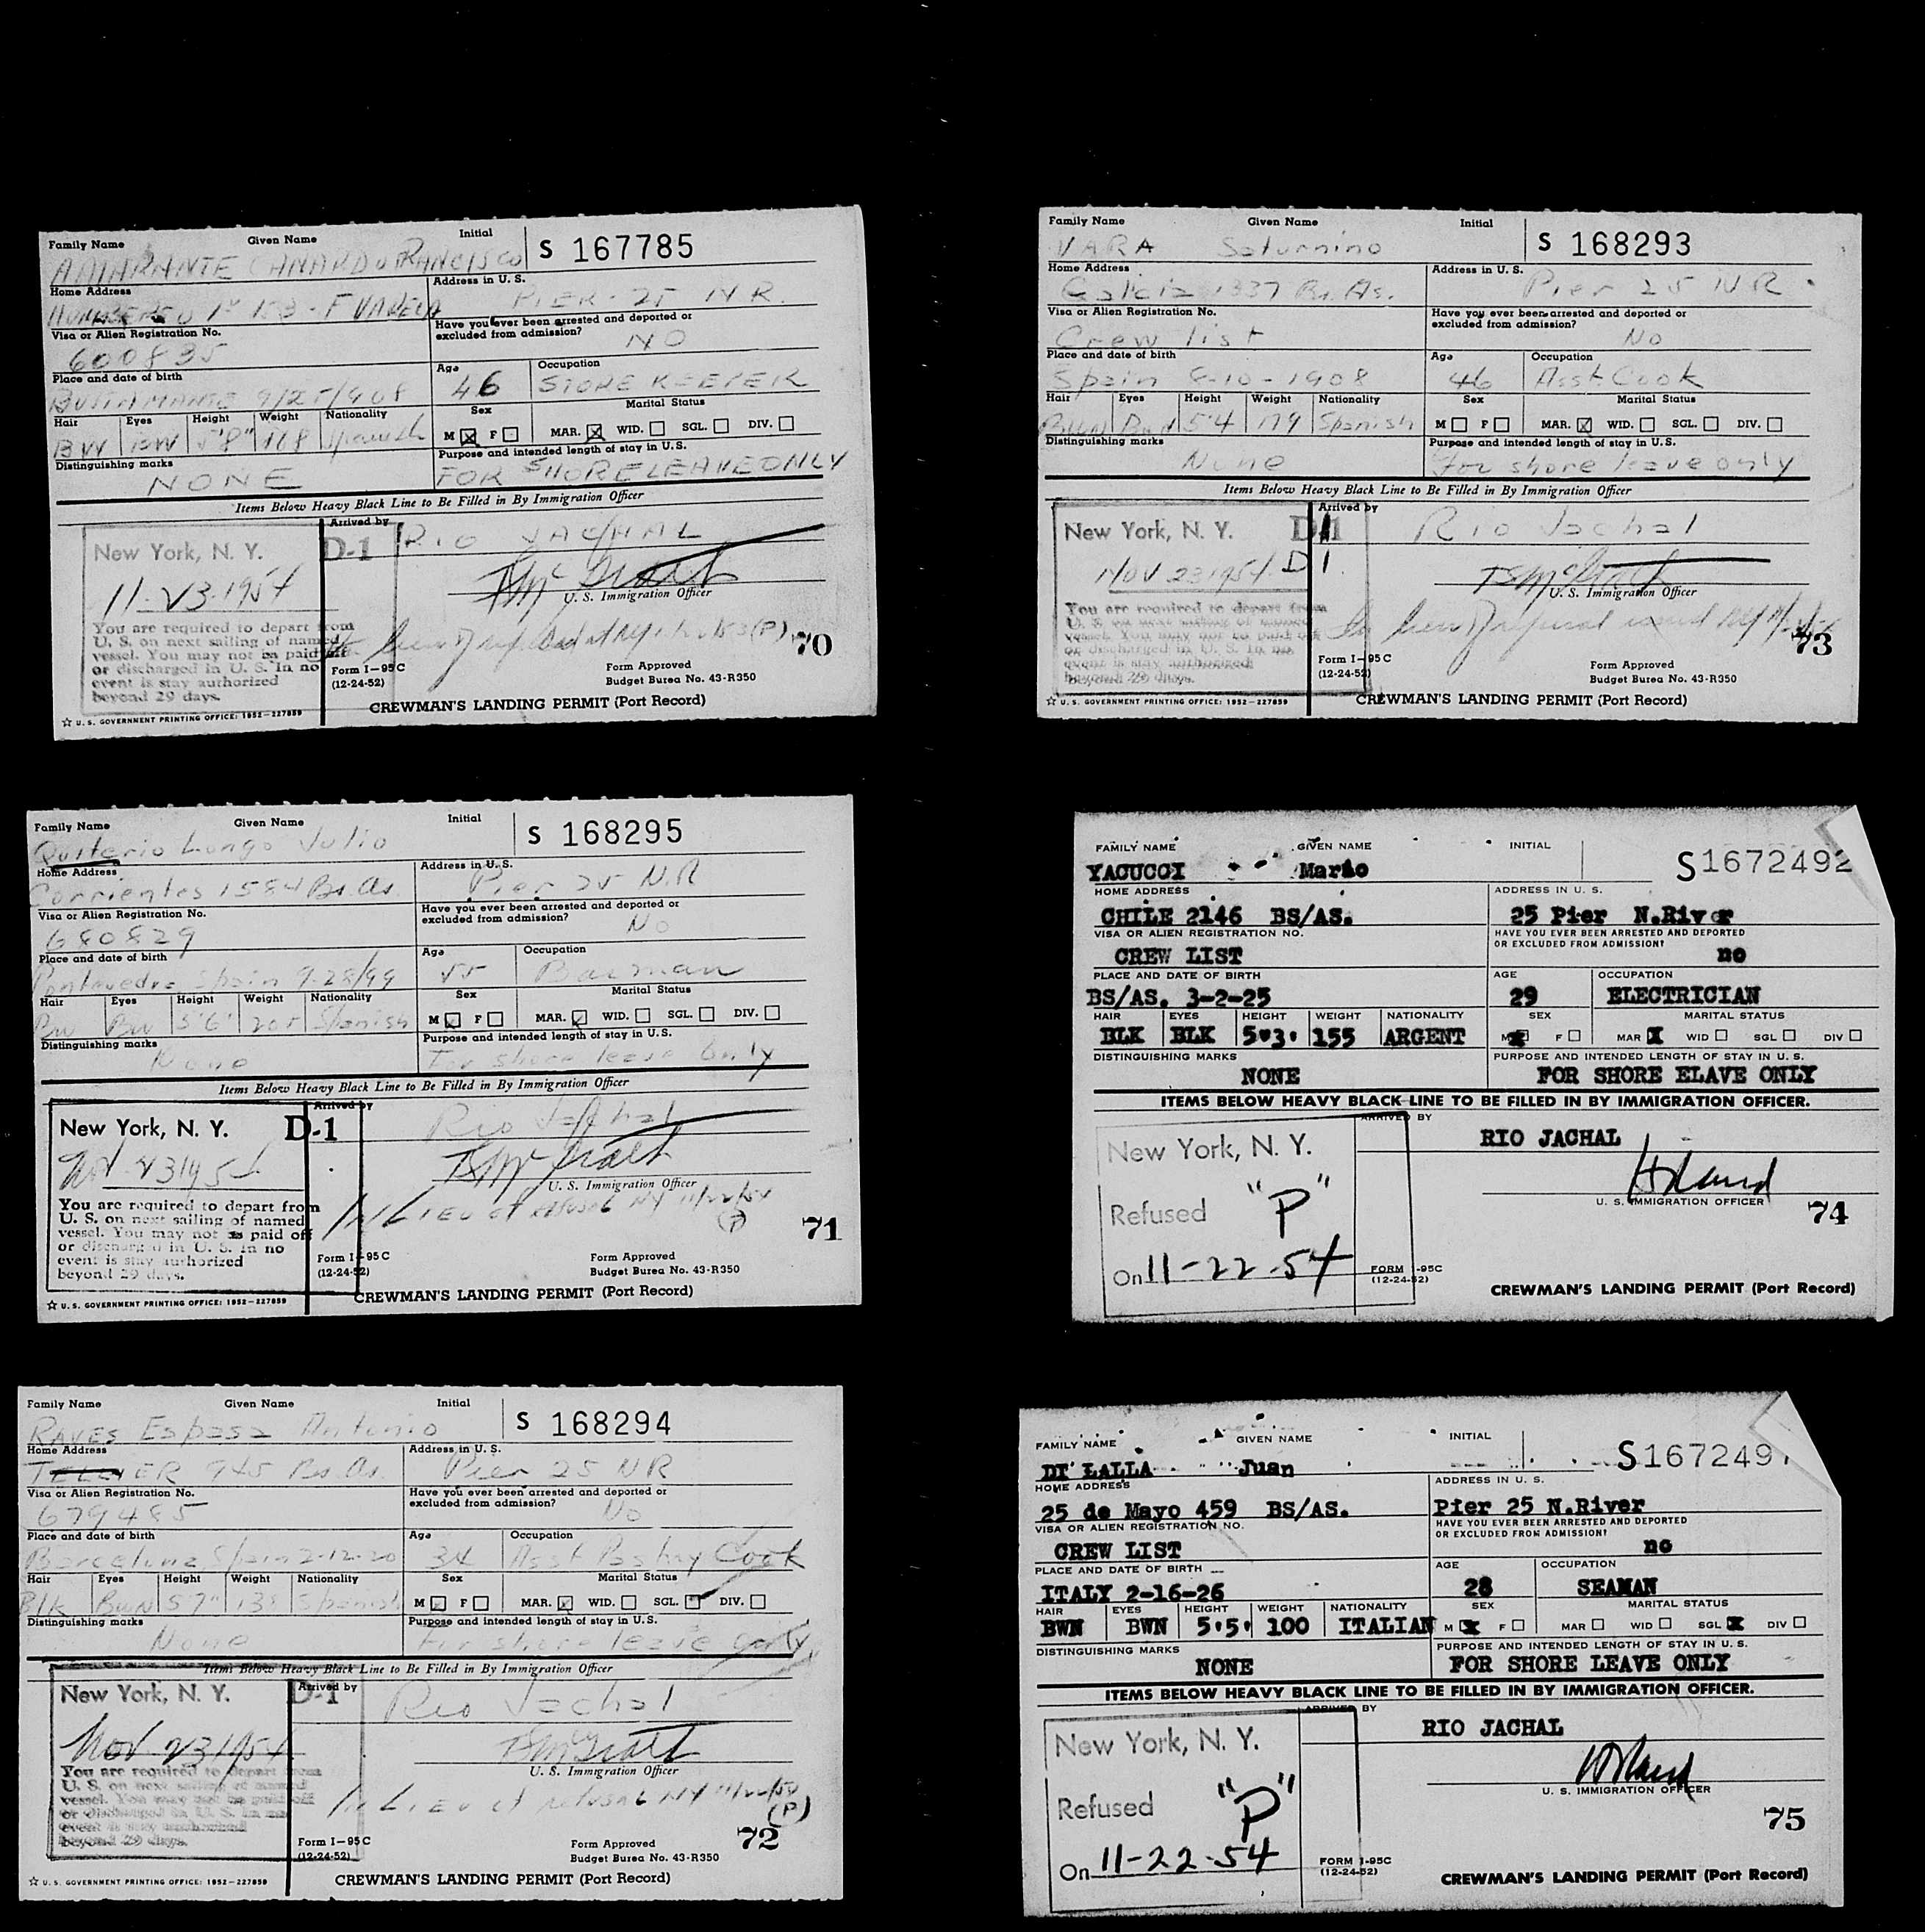 Family Name Given Name Initial
S 167785
AMARANTE FRANCISCO
Home Address Address in U. S.
PIER-25 N R.
Visa or Alien Registration No. Have you ever been arrested and deported or excluded from admission?
600835 NO
Place and date of birth Age Occupation
9/25/908 46 STORE KEEPER
Hair Eyes Height Weight Nationality Sex Marital Status
BW BW 5'8" 168 Spanish M ☒ F ☐ MAR. ☒ WID. ☐ SGL. ☐ DIV. ☐
Distinguishing marks Purpose and intended length of stay in U.S.
NONE FOR SHORE LEAVE ONLY
Items Below Heavy Black Line to Be Filled in By Immigration Officer
Arrived by
New York, N. Y. D-1 RIO JACHAL
11-23-1954
U. S. Immigration Officer
You are required to depart from
U. S. on next sailing of named
vessel. You may not be paid off
or discharged in U. S. In no
event is stay authorized
beyond 29 days.
(P) 70
Form I-95C
(12-24-52)
Form Approved
Budget Bureau No. 43-R350
☆ U. S. GOVERNMENT PRINTING OFFICE: 1952-227859
CREWMAN'S LANDING PERMIT (Port Record)
Family Name Given Name Initial
S 168295
Quiterio Longo Julio
Home Address Address in U. S.
Corrientes 1584 Bs. As. Pier 25 N.R
Visa or Alien Registration No. Have you ever been arrested and deported or excluded from admission?
680829 No
Place and date of birth Age Occupation
Pontevedra Spain 9-28/99 55 Barman
Hair Eyes Height Weight Nationality Sex Marital Status
Bw Bw 5'6" 205 Spanish M ☒ F ☐ MAR. ☒ WID. ☐ SGL. ☐ DIV. ☐
Distinguishing marks Purpose and intended length of stay in U.S.
None For shore leave only
Items Below Heavy Black Line to Be Filled in By Immigration Officer
Arrived by
New York, N. Y. D-1 Rio Jachal
Nov 23 1954
U. S. Immigration Officer
You are required to depart from
U. S. on next sailing of named
vessel. You may not be paid off
or discharged in U. S. In no
event is stay authorized
beyond 29 days.
IN LIEU of refusal NY 11/22/54
(P) 71
Form I-95C
(12-24-52)
Form Approved
Budget Bureau No. 43-R350
☆ U. S. GOVERNMENT PRINTING OFFICE: 1952-227859
CREWMAN'S LANDING PERMIT (Port Record)
Family Name Given Name Initial
S 168294
RAVES Espasa Antonio
Home Address Address in U. S.
945 Bs. As. Pier 25 NR
Visa or Alien Registration No. Have you ever been arrested and deported or excluded from admission?
679485 No
Place and date of birth Age Occupation
Barcelona Spain 2-12-20 34 Asst Pastry Cook
Hair Eyes Height Weight Nationality Sex Marital Status
Blk Bwn 5 7" 138 Spanish M ☒ F ☐ MAR. ☒ WID. ☐ SGL. ☐ DIV. ☐
Distinguishing marks Purpose and intended length of stay in U.S.
None For shore leave only
Items Below Heavy Black Line to Be Filled in By Immigration Officer
Arrived by
New York, N. Y. D-1 Rio Jachal
Nov 23 1954
U. S. Immigration Officer
You are required to depart from
U. S. on next sailing of named
vessel. You may not be paid off
or discharged in U. S. In no
event is stay authorized
beyond 29 days.
In LIEU of refusal NY 11/22/54
(P) 72
Form I-95C
(12-24-52)
Form Approved
Budget Bureau No. 43-R350
☆ U. S. GOVERNMENT PRINTING OFFICE: 1952-227859
CREWMAN'S LANDING PERMIT (Port Record)
Family Name Given Name Initial
S 168293
VARA Saturnino
Home Address Address in U. S.
1337 Bs. As. Pier 25 NR
Visa or Alien Registration No. Have you ever been arrested and deported or excluded from admission?
Crew list No
Place and date of birth Age Occupation
Spain 8-10-1908 46 Asst. Cook
Hair Eyes Height Weight Nationality Sex Marital Status
Bwn 5'4 179 Spanish M ☐ F ☐ MAR. ☒ WID. ☐ SGL. ☐ DIV. ☐
Distinguishing marks Purpose and intended length of stay in U.S.
None For shore leave only
Items Below Heavy Black Line to Be Filled in By Immigration Officer
Arrived by
New York, N. Y. D-1 Rio Jachal
NOV 23 1954 D 1.
U. S. Immigration Officer
You are required to depart from
U. S. on next sailing of named
vessel. You may not be paid off
or discharged in U. S. In no
event is stay authorized
beyond 29 days.
In lieu of refusal issued NY
73
Form I-95C
(12-24-52)
Form Approved
Budget Bureau No. 43-R350
☆ U. S. GOVERNMENT PRINTING OFFICE: 1952-227859
CREWMAN'S LANDING PERMIT (Port Record)
FAMILY NAME GIVEN NAME INITIAL
S1672492
YACUCCI Mario
HOME ADDRESS ADDRESS IN U. S.
CHILE 2146 BS/AS. 25 Pier N.River
VISA OR ALIEN REGISTRATION NO. HAVE YOU EVER BEEN ARRESTED AND DEPORTED OR EXCLUDED FROM ADMISSION?
CREW LIST no
PLACE AND DATE OF BIRTH AGE OCCUPATION
BS/AS. 3-2-25 29 ELECTRICIAN
HAIR EYES HEIGHT WEIGHT NATIONALITY SEX MARITAL STATUS
BLK BLK 5'3' 155 ARGENT M ☒ F ☐ MAR ☒ WID ☐ SGL ☐ DIV ☐
DISTINGUISHING MARKS PURPOSE AND INTENDED LENGTH OF STAY IN U. S.
NONE FOR SHORE ELAVE ONLY
ITEMS BELOW HEAVY BLACK LINE TO BE FILLED IN BY IMMIGRATION OFFICER.
ARRIVED BY
New York, N. Y. RIO JACHAL
Refused "P"
U. S. IMMIGRATION OFFICER
74
On 11-22-54
FORM I-95C
(12-24-52)
CREWMAN'S LANDING PERMIT (Port Record)
FAMILY NAME GIVEN NAME INITIAL
S167249
DI' LALLA Juan
HOME ADDRESS ADDRESS IN U. S.
25 de Mayo 459 BS/AS. Pier 25 N.River
VISA OR ALIEN REGISTRATION NO. HAVE YOU EVER BEEN ARRESTED AND DEPORTED OR EXCLUDED FROM ADMISSION?
CREW LIST no
PLACE AND DATE OF BIRTH AGE OCCUPATION
ITALY 2-16-26 28 SEAMAN
HAIR EYES HEIGHT WEIGHT NATIONALITY SEX MARITAL STATUS
BWN BWN 5'5' 100 ITALIAN M ☒ F ☐ MAR ☐ WID ☐ SGL ☒ DIV ☐
DISTINGUISHING MARKS PURPOSE AND INTENDED LENGTH OF STAY IN U. S.
NONE FOR SHORE LEAVE ONLY
ITEMS BELOW HEAVY BLACK LINE TO BE FILLED IN BY IMMIGRATION OFFICER.
ARRIVED BY
New York, N. Y. RIO JACHAL
Refused "P"
U. S. IMMIGRATION OFFICER
75
On 11-22-54
FORM I-95C
(12-24-52)
CREWMAN'S LANDING PERMIT (Port Record)